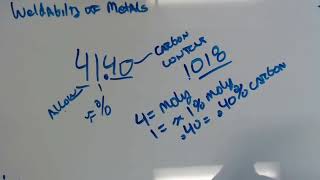 Weldability of Metals
4140
CARBON
CONTENT
1018
ALLOY
%
4 = moly
1 = 1% moly
.40 = .40% CARBON